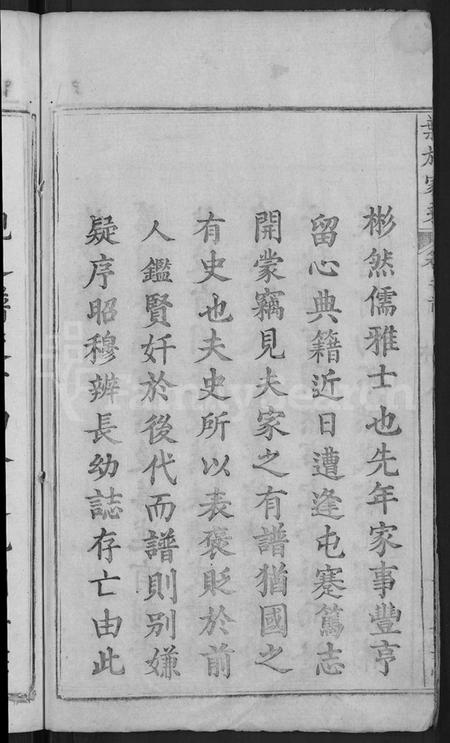 彬然儒雅士也先年家事豐亨
留心典籍近日遭逢屯蹇篤志
開蒙竊見夫家之有譜猶國之
有史也夫史所以表褒貶於前
人鑑賢奸於後代而譜則别嫌
疑序昭穆辨長幼誌存亡由此
FamilySearch